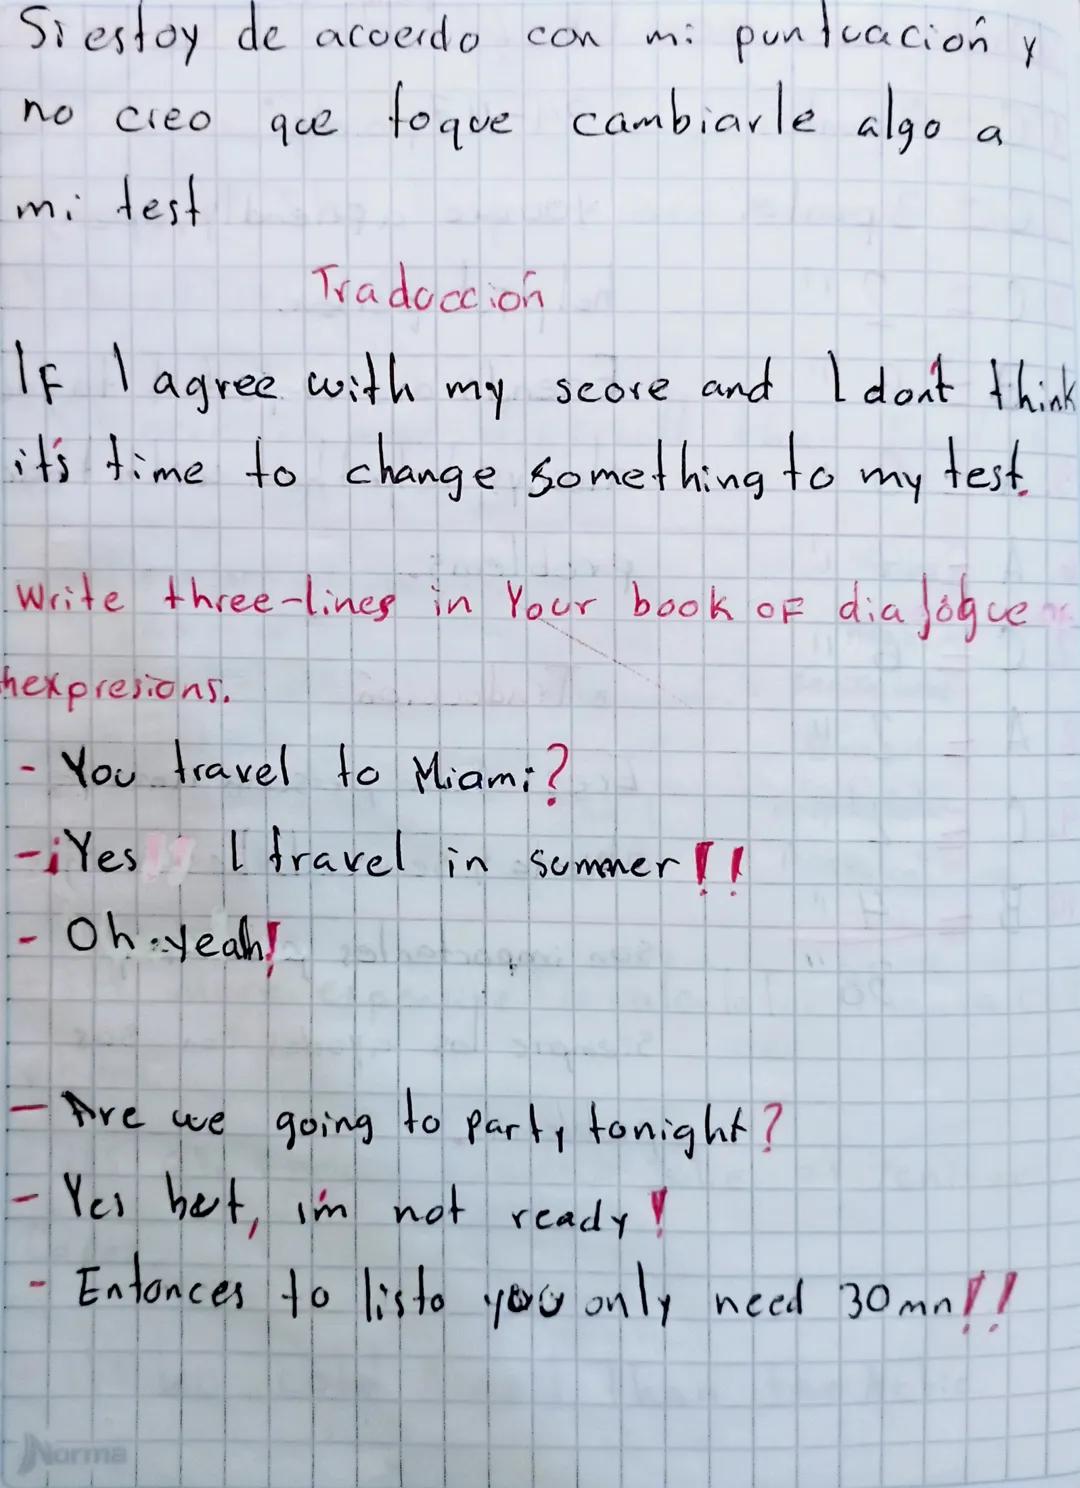 Si estoy de acuerdo con mi puntuación y
no creo que toque cambiarle algo a
mi test
Traducción
IF I agree with my score and I don't think
it's time to change something to my test.
Write three-lines in Your book OF dialogue
hexpresions.
- You travel to Miami?
- ¡Yes I travel in summer!!
- Oh yeah!
- Are we going to party tonight?
- Yes but, im not ready!
- Entonces to listo you only need 30mn!!
Norma